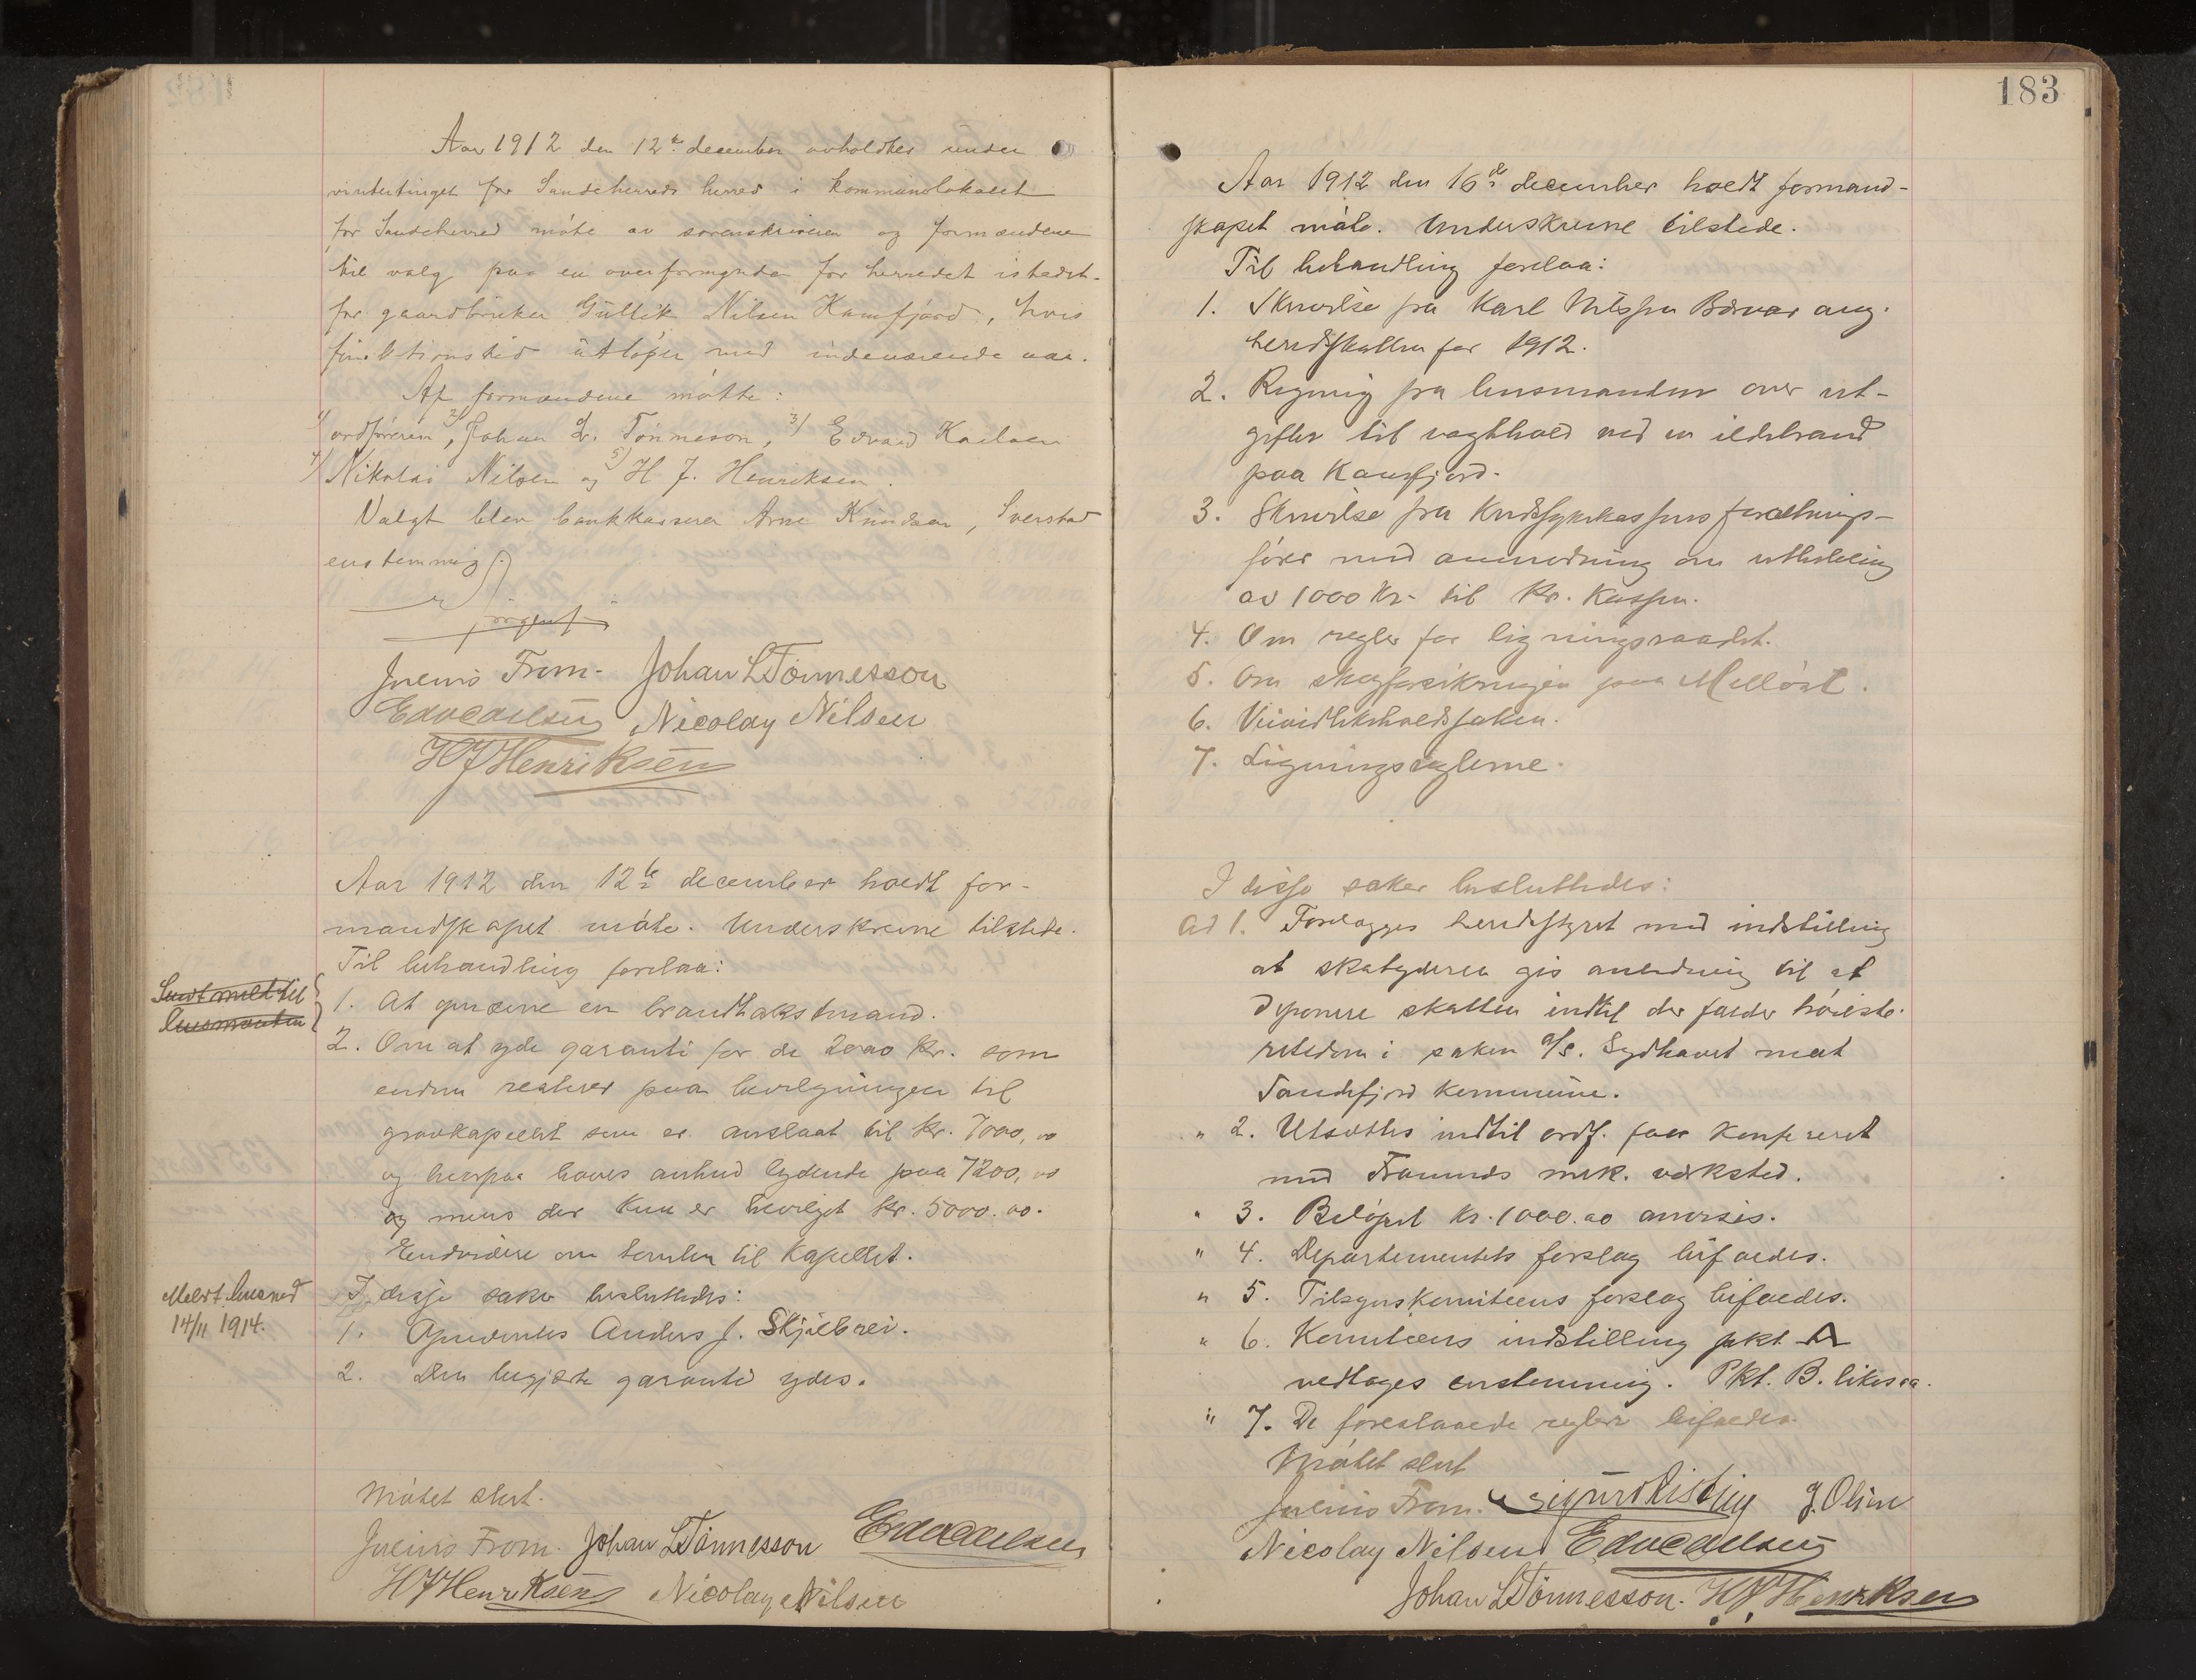 Aar 1912 den 12te december avholdtes under
vintertinget for Sandeherreds herred i kommunelokalet
for Sandeherred møte av sorenskriveren og formændene
til valg paa en overformynder for herredet istedet-
for gaardbruker Gullik Nilsen Kamfjord, hvis
funktionstid utløper med indeværende aar.
Af formændene møtte:
1) ordføreren, 2) Johan L. Tönneson, 3) Edvard Karlsen
4) Nikolai Nilsen og 5) H. J. Henriksen.
Valgt blev bankkasserer Arne Knudsen, Sverstad
enstemmig.
Julius From. Johan L Tönnesson
Edv Carlsen Nicolay Nilsen
H J Henriksen
Aar 1912 den 12te december holdt for-
mandskapet møte. Underskrevne tilstede.
Til behandling forelaa:
Sendt meld. til
lensmanden
1. At opnævne en brandtakstmand.
2. Om at yde garanti for de 2000 kr. som
endnu resterer paa bevilgningen til
gravkapellet som er anslaat til kr. 7000,00
og hvorpaa haves anbud lydende paa 7200,00
og mens der kun er bevilget kr. 5000.00.
Endvidere om tomten til kapellet.
Meldt lensmd
14/11 1914.
I disse saker besluttedes:
1. Opnævntes Anders J. Skjelbrei.
2. Den begjærte garanti ydes.
Møtet slut.
Julius From. Johan L Tönnesson Edv Carlsen
H J Henriksen Nicolay Nilsen
183
Aar 1912 den 16de december holdt formand-
skapet møte. Underskrevne tilstede.
Til behandling forelaa:
1. Skrivelse fra Karl Nilssen Bærvar ang.
herredsskatten for 1912.
2. Regning fra lensmanden over ut-
gifter til vagthold ved en ildebrand
paa Kamfjord.
3. Skrivelse fra Kredssykekassens forretnings-
fører med anmodning om utbetaling
av 1000 kr. til Kr. kassen.
4. Om regler for ligningsraadet.
5. Om skogforsikringen paa Melløst.
6. Veivedlikeholdssaken.
7. Ligningsreglerne.
I disse saker besluttedes:
Ad 1. Forelægges herredsstyret med indstilling
at skatyderen gis anledning til at
deponere skatten indtil der falder høieste-
retsdom i saken A/S. Sydhavet mot
Sandefjord kommune.
" 2. Utsættes indtil ordf. faar konfereret
med Framnæs mek. værksted.
" 3. Beløpet kr. 1000.00 anvises.
" 4. Departementets forslag bifaldes.
" 5. Tilsynskomiteens forslag bifaldes.
" 6. Komiteens indstilling pkt. A
vedtages enstemmig. Pkt. B. likesaa.
" 7. De foreslaaede regler bifaldes.
Møtet slut
Julius From. Sigurd Risting J. Olsen
Nicolay Nilsen Edv Carlsen
Johan L Tönnesson. H J Henriksen